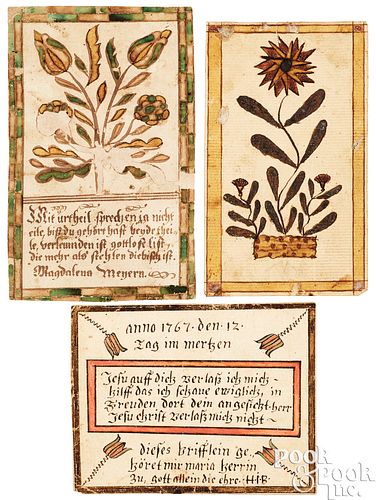 Mit urtheil sprechen ja nicht
eile, bist du gehört hast beyde thei-
le, verleumden ist gottlose list,
die mehr als stehlen diebisch ist.
Magdalena Meyern.
anno 1767. den. 12.
Tag im mertzen
Jesu auff dich verlaß ich mich -
Hilff das ich schaue ewiglich, in
Freuden dort dein angesicht. herr
Jesu christ verlaß mich nicht ~
dieses brifflein ge,
höret mir maria herrin
Zu, gott allein die ehre. HR
POOK
& POOK
Inc.